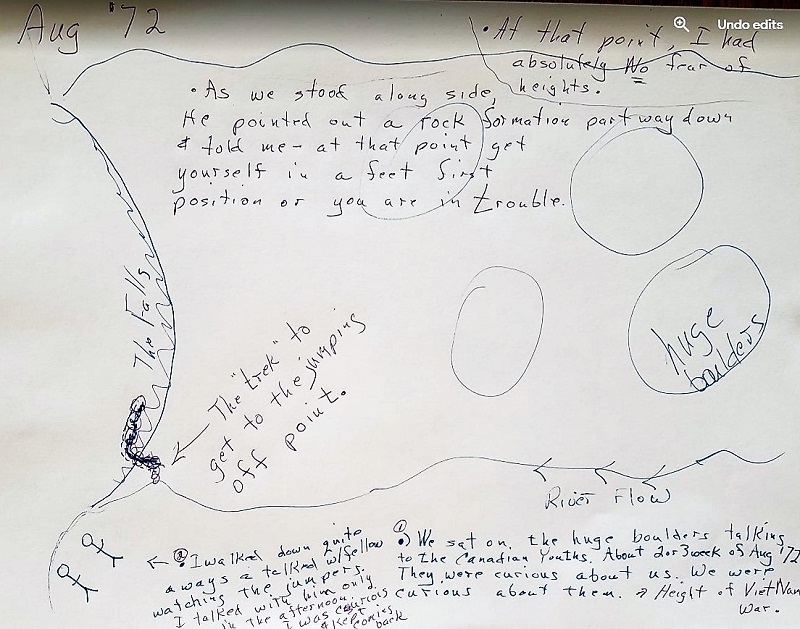 Aug '72
Undo edits
• At that point, I had
absolutely No fear of
heights.
• As we stood along side,
He pointed out a rock formation part way down
& told me - at that point get
yourself in a feet first
position or you are in trouble.
The Falls
huge
boulders
The "trek" to
get to the jumping
off point.
River Flow
① • We sat on the huge boulders talking
to the Canadian Youths. About 2 or 3 week of Aug '72
They were curious about us. We were
curious about them. → Height of Viet Nam
War.
② • I walked down quite
a ways & talked w/ fellow
watching the jumpers.
I talked with him only
in the afternoon.
I was curious
& kept coming
back